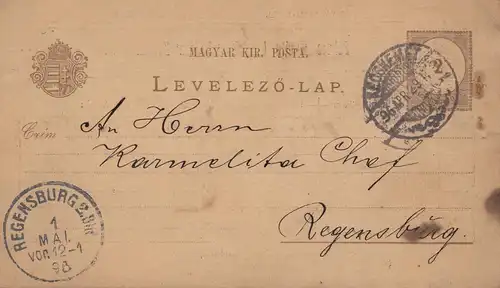 MAGYAR KIR. POSTA.
LEVELEZŐ-LAP.
Czim
An Herrn
Karmelita Chef
Regensburg.
REGENSBURG 2. Bhf
1
MAI.
VOR. 12-1
98